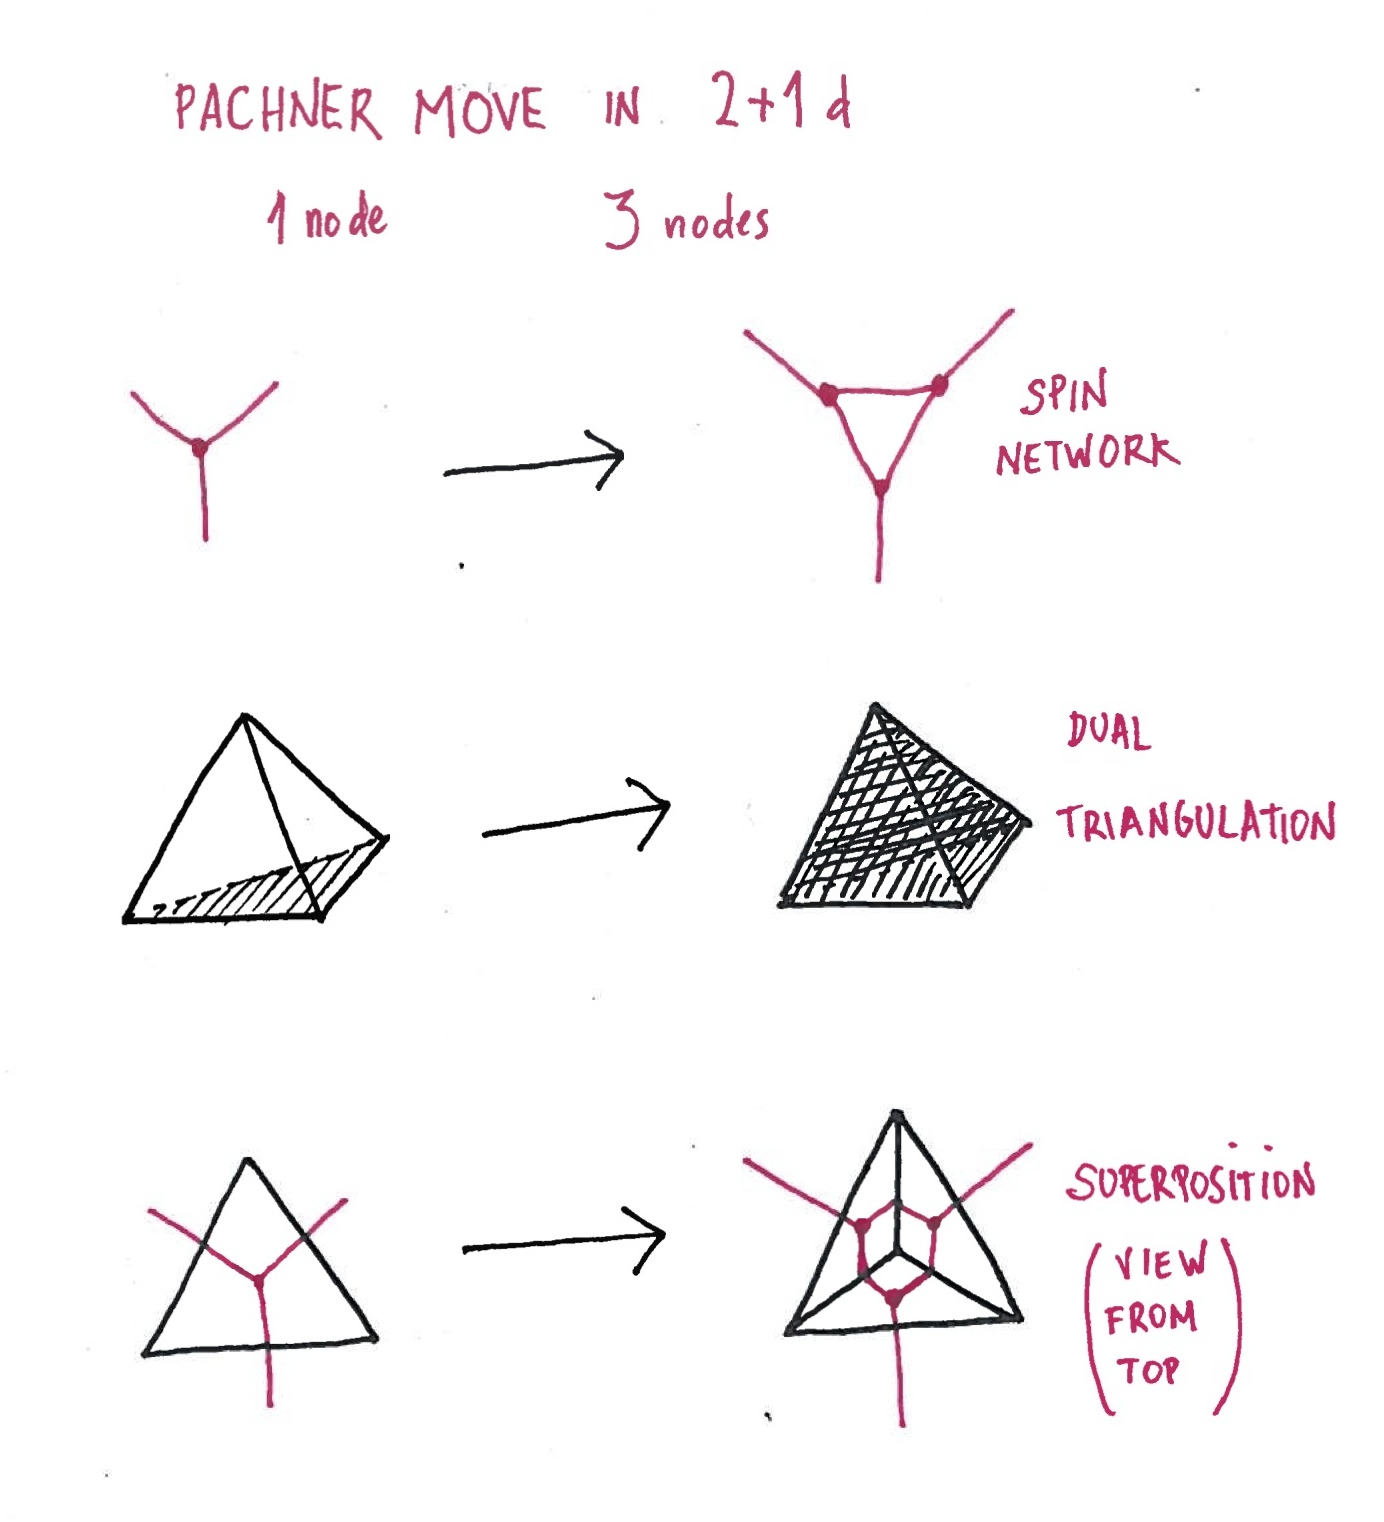 PACHNER MOVE IN 2+1 d
1 node 3 nodes
SPIN
NETWORK
DUAL
TRIANGULATION
SUPERPOSITION
(VIEW
FROM
TOP)